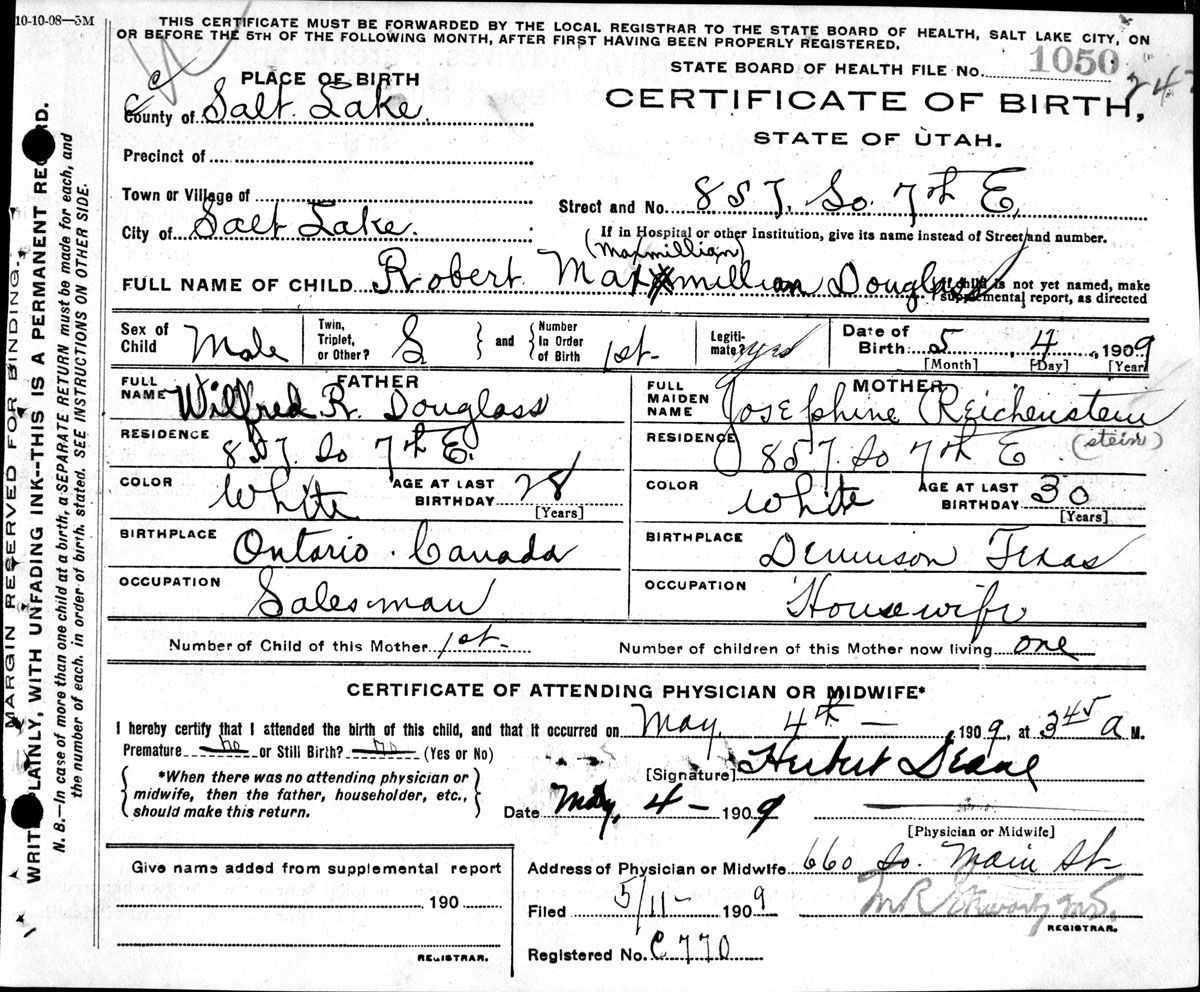 10-10-08—5M
THIS CERTIFICATE MUST BE FORWARDED BY THE LOCAL REGISTRAR TO THE STATE BOARD OF HEALTH, SALT LAKE CITY, ON
OR BEFORE THE 5TH OF THE FOLLOWING MONTH, AFTER FIRST HAVING BEEN PROPERLY REGISTERED.
STATE BOARD OF HEALTH FILE No. 1050
247
PLACE OF BIRTH
CERTIFICATE OF BIRTH,
STATE OF UTAH.
County of Salt Lake.
Precinct of
Town or Village of
Street and No. 857. So. 7th E.
City of Salt Lake.
If in Hospital or other Institution, give its name instead of Street and number.
(Maxmillian)
FULL NAME OF CHILD Robert Maxmillian Douglass
If child is not yet named, make
supplemental report, as directed
Sex of Child Male
Twin, Triplet, or Other? S
and
Number In Order of Birth 1st-
Legitimate? yes
Date of Birth 5, 4, 1909
[Month] [Day] [Year]
FATHER
FULL NAME Wilfred R. Douglass
RESIDENCE 857. So 7th E.
COLOR White
AGE AT LAST BIRTHDAY 28
[Years]
BIRTHPLACE Ontario. Canada
OCCUPATION Salesman
MOTHER
FULL MAIDEN NAME Josephine Reichenstein
(stein)
RESIDENCE 857. So 7th E
COLOR White
AGE AT LAST BIRTHDAY 30
[Years]
BIRTHPLACE Dennison Texas
OCCUPATION Housewife
Number of Child of this Mother 1st-
Number of children of this Mother now living one
CERTIFICATE OF ATTENDING PHYSICIAN OR MIDWIFE*
I hereby certify that I attended the birth of this child, and that it occurred on May, 4th — , 1909, at 3 45 a M.
Premature no or Still Birth? no (Yes or No)
*When there was no attending physician or
midwife, then the father, householder, etc.,
should make this return.
[Signature] Herbert
Date May, 4- 1909
[Physician or Midwife]
Give name added from supplemental report
190
REGISTRAR.
Address of Physician or Midwife 660 So. Main St-
Filed 5/11- 1909
M.D.
REGISTRAR.
Registered No. C770
MARGIN RESERVED FOR BINDING.
WRITE PLAINLY, WITH UNFADING INK--THIS IS A PERMANENT RECORD.
N. B.—In case of more than one child at a birth, a SEPARATE RETURN must be made for each, and
the number of each, in order of birth, stated. SEE INSTRUCTIONS ON OTHER SIDE.